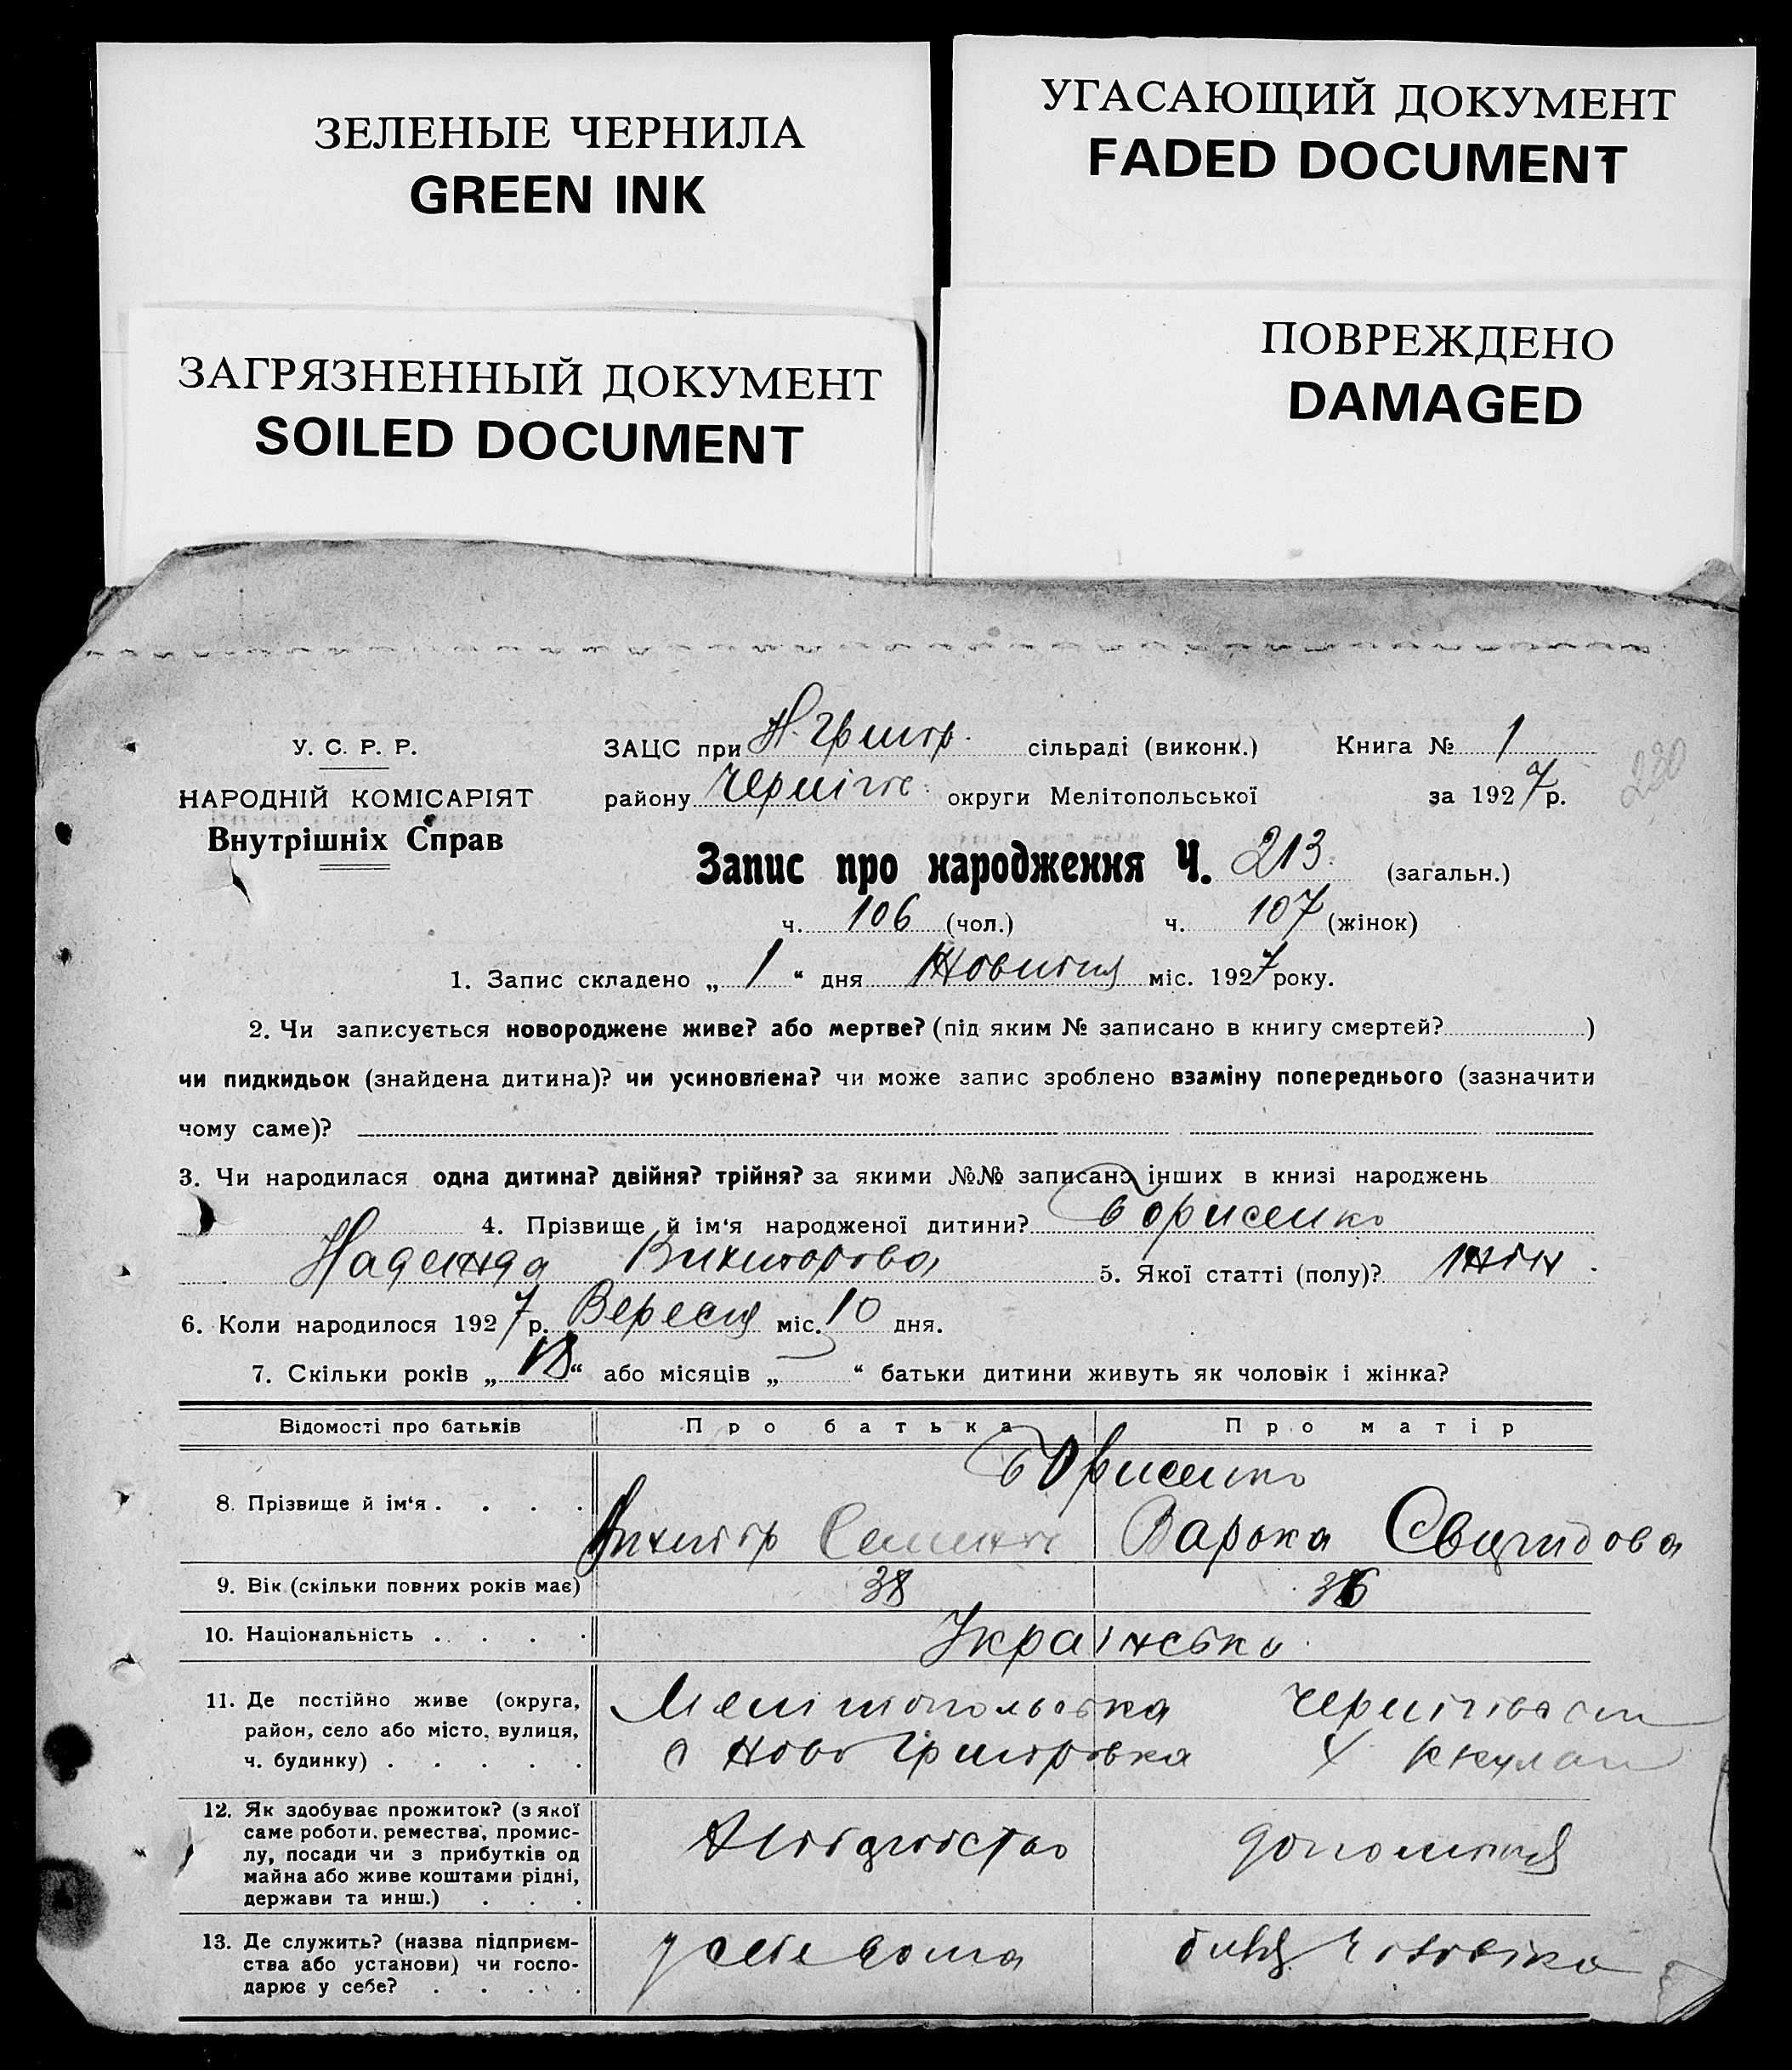 ЗЕЛЕНЫЕ ЧЕРНИЛА
GREEN INK
УГАСАЮЩИЙ ДОКУМЕНТ
FADED DOCUMENT
ЗАГРЯЗНЕННЫЙ ДОКУМЕНТ
SOILED DOCUMENT
ПОВРЕЖДЕНО
DAMAGED
У. С. Р. Р.
НАРОДНІЙ КОМІСАРІЯТ
Внутрішніх Справ
ЗАЦС при Н. Григор. сільраді (виконк.) Книга № 1
району Черніг. округи Мелітопольської за 1927 р.
230
Запис про народження Ч. 213 (загальн.)
ч. 106 (чол.) ч. 107 (жінок)
1. Запис складено „ 1 “ дня Жовтня міс. 1927 року.
2. Чи записується новороджене живе? або мертве? (під яким № записано в книгу смертей? )
чи пидкидьок (знайдена дитина)? чи усиновлена? чи може запис зроблено взаміну попереднього (зазначити
чому саме)?
3. Чи народилася одна дитина? двійня? трійня? за якими №№ записано інших в книзі народжень
4. Прізвище й ім‘я народженої дитини? Борисенко
Надежда Викторова 5. Якої статті (полу)? жін.
6. Коли народилося 1927 р. Вересня міс. 10 дня.
7. Скільки років „ 18 “ або місяців „ “ батьки дитини живуть як чоловік і жінка?
Відомості про батьків Про батька Про матір
8. Прізвище й ім‘я . . . .
Борисенко
Виктор Варька
9. Вік (скільки повних років має) 38 36
10. Національність . . . . Українська
11. Де постійно живе (округа,
район, село або місто, вулиця,
ч. будинку) . . . . .
Мелітопольська
с Ново Григоровка
12. Як здобуває прожиток? (з якої
саме роботи, ремества, промис-
лу, посади чи з прибутків од
майна або живе коштами рідні,
держави та инш.) . . .
13. Де служить? (назва підприєм-
ства або установи) чи госпо-
дарює у себе? . . . .
у себе дома
біля чоловіка